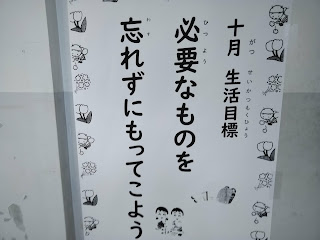 十月 生活目標
必要なものを
忘れずにもってこよう